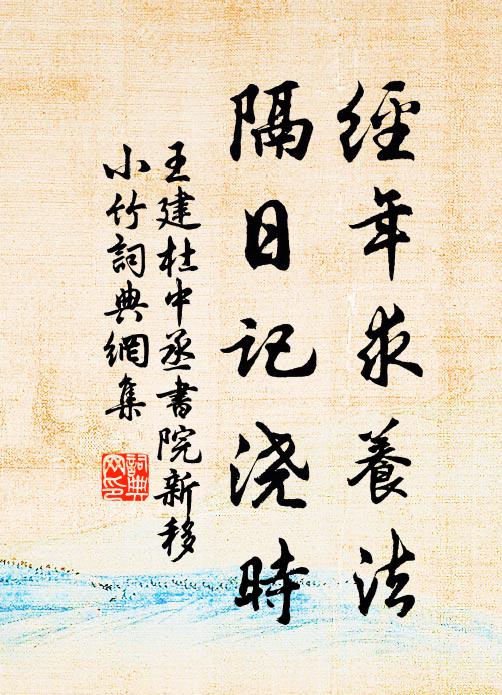 經年求養法
隔日记浇時
王建杜中丞書院新移
小竹詞典網集
詞典
网印